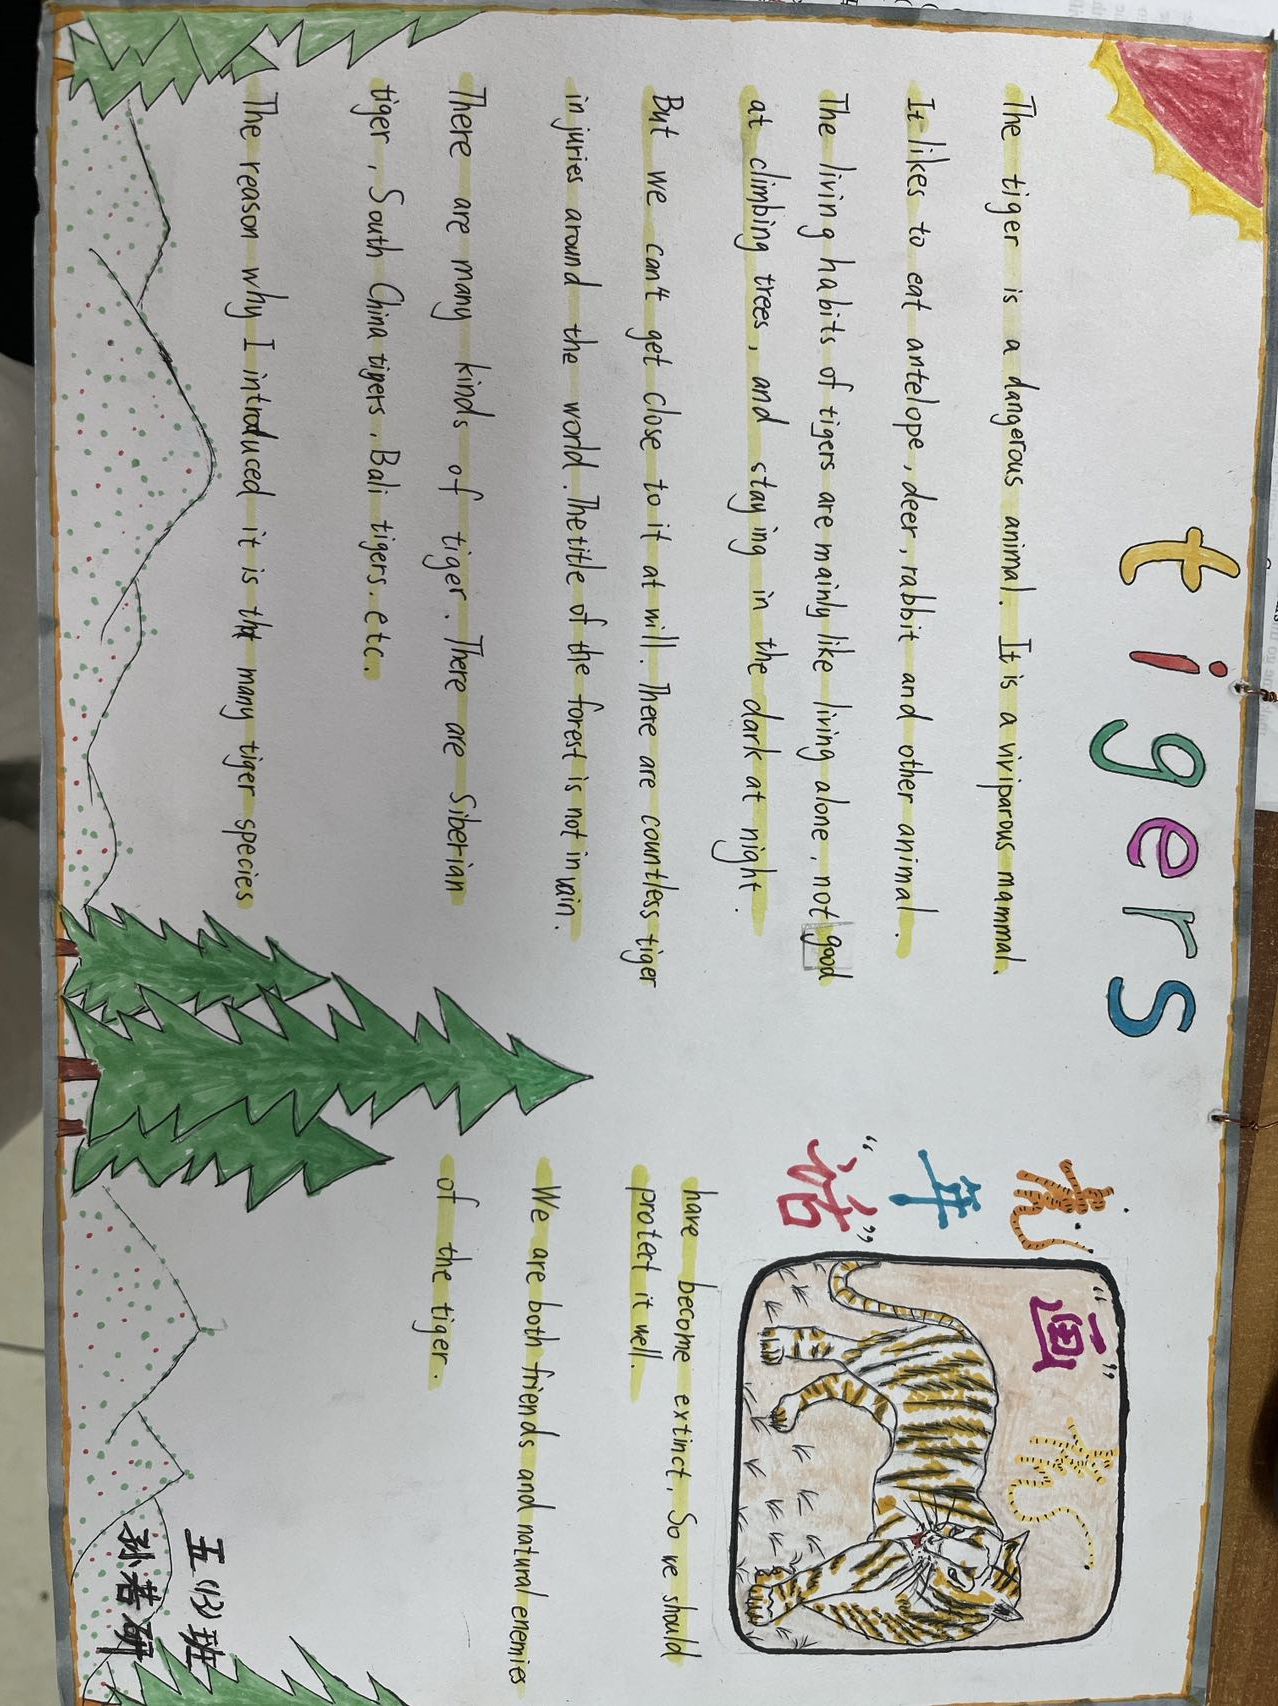 tigers
The tiger is a dangerous animal. It is a viviparous mammal.
It likes to eat antelope, deer, rabbit and other animal.
The living habits of tigers are mainly like living alone, not good
at climbing trees, and staying in the dark at night.
But we can't get close to it at will. There are countless tiger
injuries around the world. The title of the forest is not in vain.
There are many kinds of tiger. There are Siberian
tiger, South China tigers, Bali tigers. etc.
The reason why I introduced it is that many tiger species
虎
年
“话”
“画”
虎
have become extinct, So we should
protect it well.
We are both friends and natural enemies
of the tiger.
五(13)班
孙若研